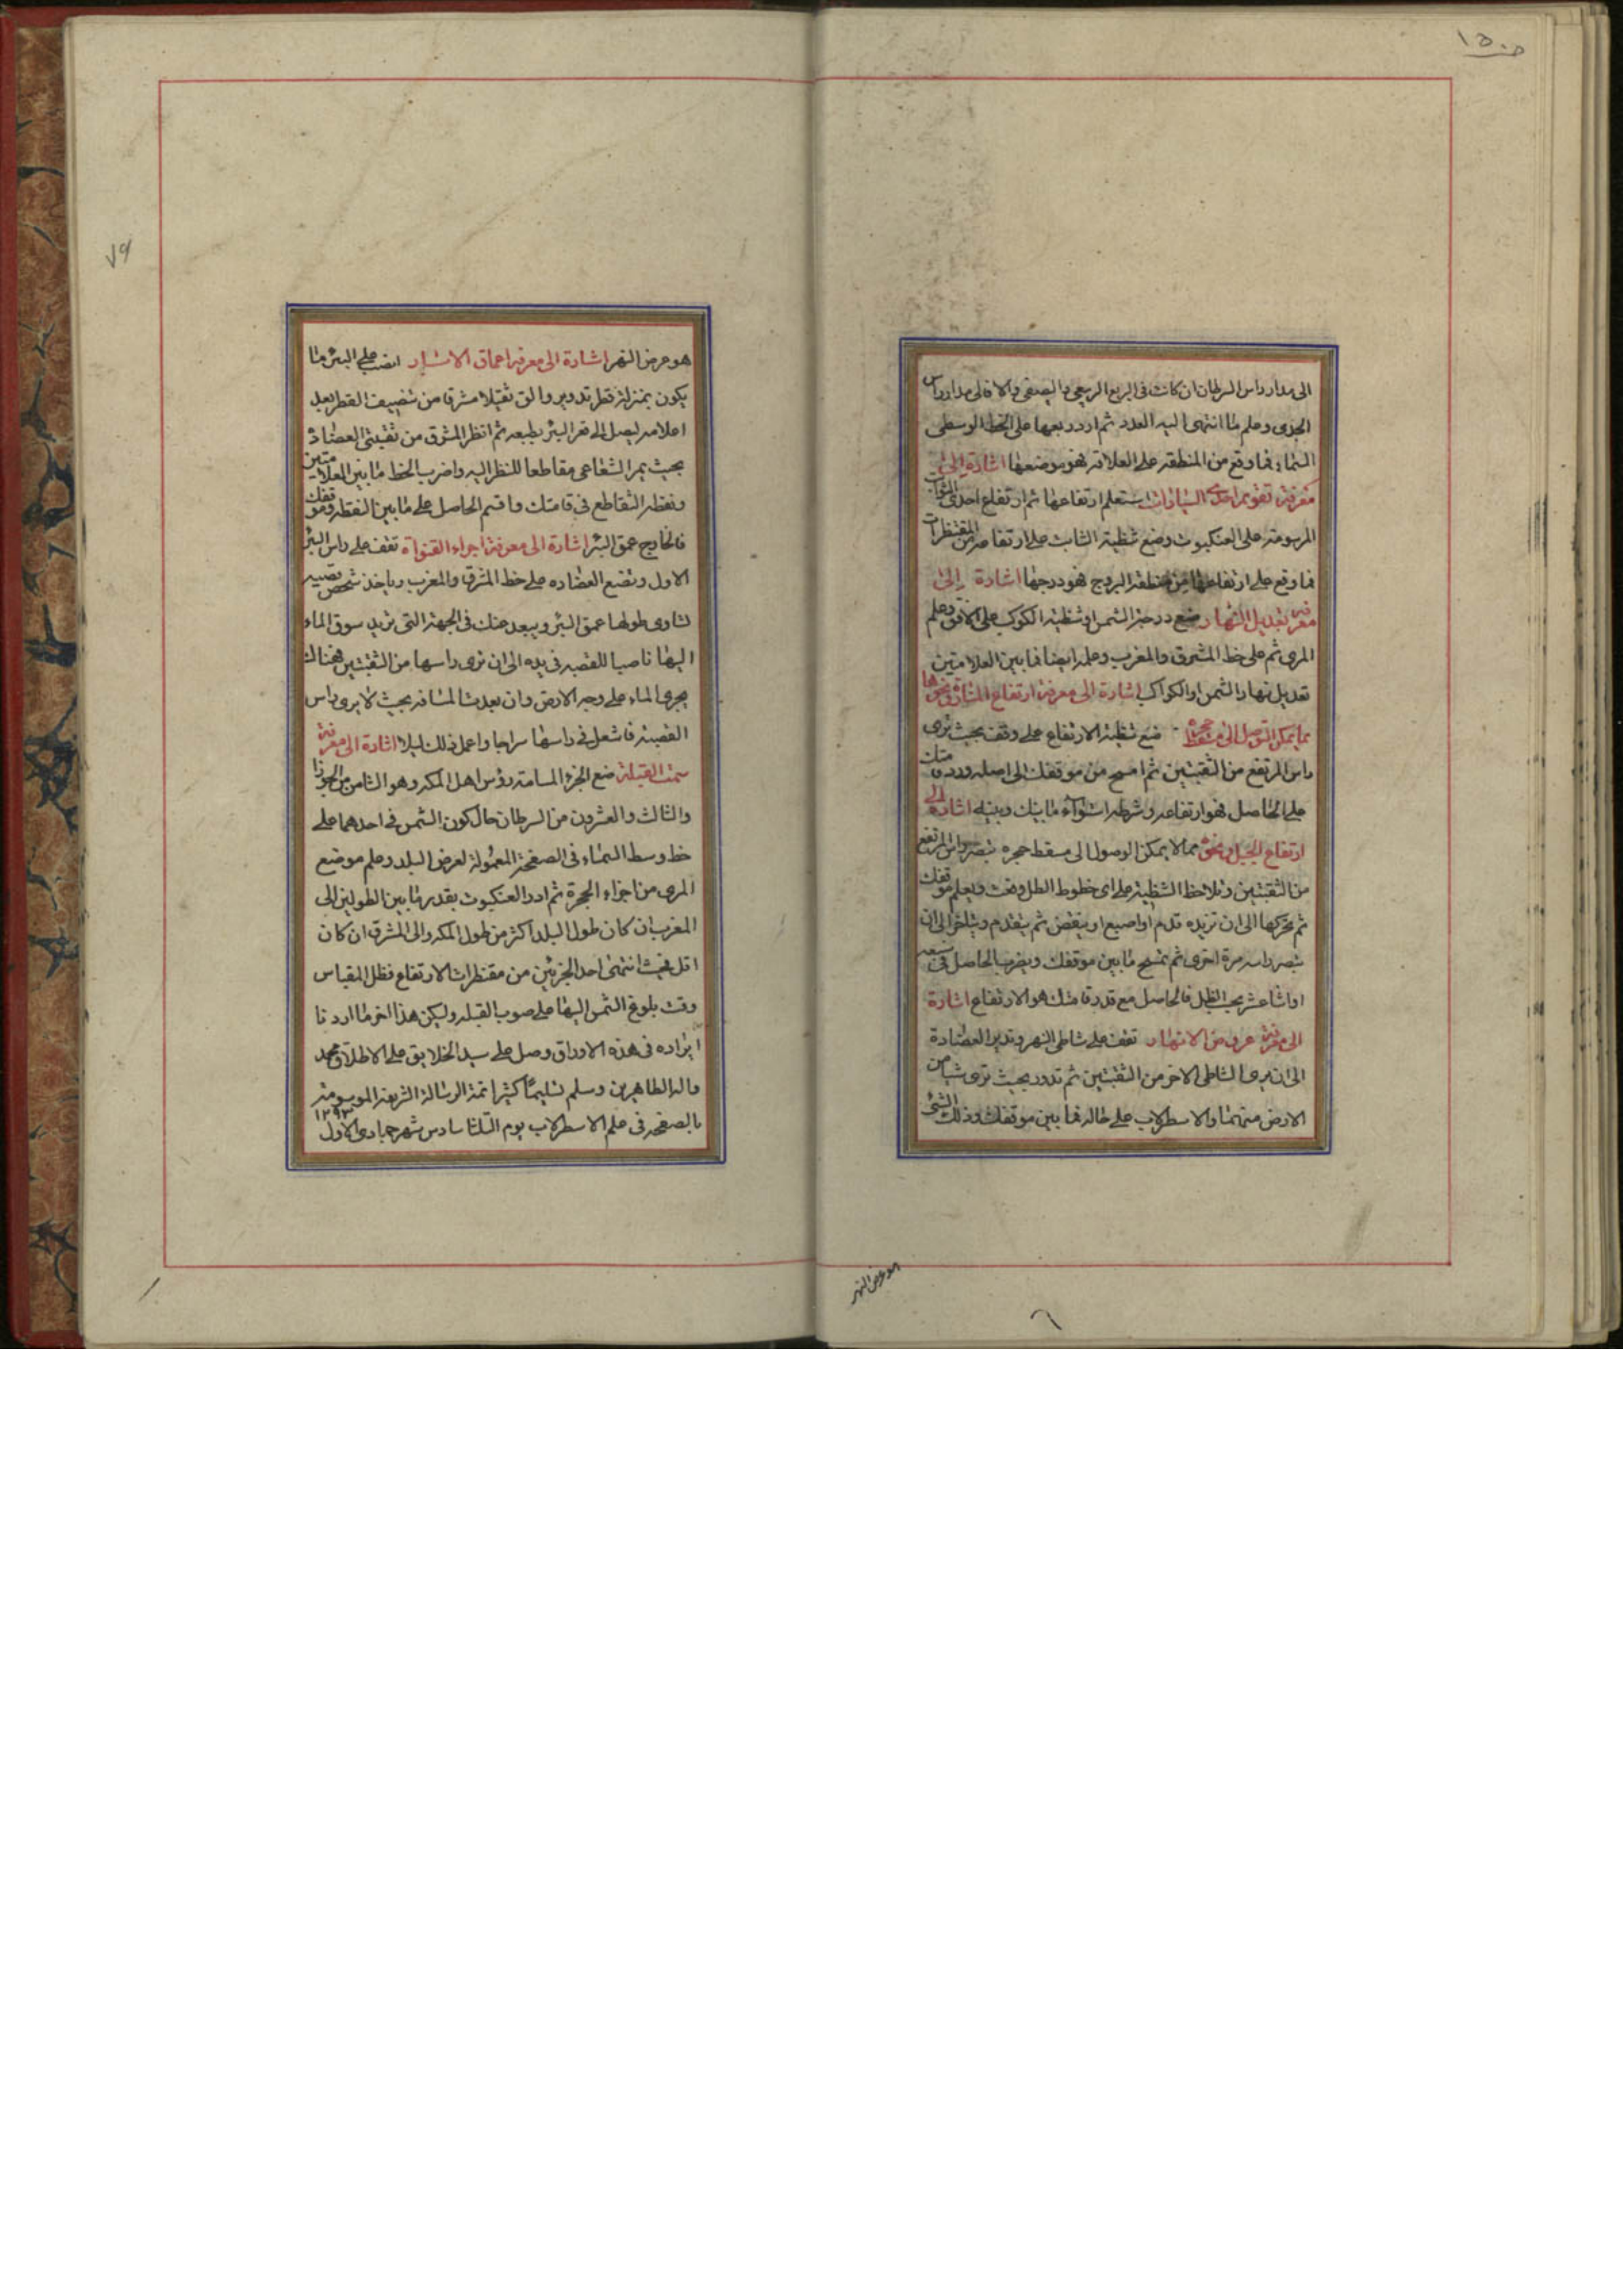 ١٥٠٥
الى مدار راس السرطان ان كانت فى الربع الربيعى والصيفى والا فالى مدار راس
الجدى وعلم ما انتهى اليه العدد ثم ادر ربعها على الخط الوسطى
السماء فما وقع من المنطقه على العلامه فهو موضعها اشارة الى
معرفة تقويم احدى السيارات استعلم ارتفاعها ثم ارتفاع احدى الثوابت
المرسومة على العنكبوت وضع شظية الثابت على ارتفاعه من المقنطرات
فما وقع على ارتفاعها من منطقة البروج فهو درجتها اشارة إلى
معرفة تعديل النهار ضع درجة الشمس او شظية الكوكب على الافق وعلم
المرى ثم على خط المشرق والمغرب وعلم ايضا فما بين العلامتين
تعديل نهار الشمس او الكواكب اشارة الى معرفة ارتفاع المنارة ونحوها
مما يمكن التوصل الى مسقط حجره ضع شظية الارتفاع على وقف بحيث ترى
راس المرتفع من الثقبتين ثم امسح من موقفك الى اصله وزد قامتك
على الحاصل فهو ارتفاعه وشرطه استواء ما بينك وبينه اشارة الى
ارتفاع الجبل ونحوه مما لا يمكن الوصول الى مسقط حجره تبصر راس المرتفع
من الثقبتين وتلاحظ الشظية على اى خطوط الظل وقعت وتعلم موقفك
ثم تحركها الى ان تزيد قدم او اصبع او ينقص ثم يتقدم ويتاخر الى ان
تبصر راسه مرة اخرى ثم تمسح ما بين موقفك وتضرب الحاصل فى سبعه
او اثنا عشر بحسب الظل فالحاصل مع قدر قامتك هو الارتفاع اشارة
الى معرفة عرض الانهار تقف على شاطى النهر وتدير العضادة
الى ان يرى الشاطى الاخر من الثقبتين ثم تدور بحيث ترى شيئا من
الارض منهما والاسطرلاب على حاله فما بين موقفك وذلك الشئ
هو عرض النهر
هو عرض النهر اشارة الى معرفة اعماق الابار انصب على البئر ما
يكون بمنزلة قطر تدويره والق ثقيلا مشرقا من تنصيف القطر بعد
اعلامه ليصل الى قعر البئر بطبعه ثم انظر المشرق من ثقبتى العضادة
بحيث يمر الشعاعى مقاطعا للنظر اليه واضرب الخط ما بين العلامتين
ونقطة التقاطع فى قامتك واقسم الحاصل على ما بين النقطه وموقفك
فالخارج عمق البئر اشارة الى معرفة اجراء القنواة تقف على راس البئر
الاول وتضع العضاده على خط المشرق والمغرب وياخذ شخص قصبه
تساوى طولها عمق البئر ويبعد عنك فى الجهة التى تريد سوق الماء
اليها ناصبا للقصبه فى يده الى ان ترى راسها من الثقبتين فهناك
يجرى الماء على وجه الارض وان بعدت المسافه بحيث لا يرى راس
القصبة فاشعل فى راسها سراجا واعمل ذلك ليلا اشارة الى معرفة
سمت القبلة ضع الجزء المسامته رؤس اهل المكه وهو الثامن من الجوزا
والثالث والعشرون من السرطان حال كون الشمس فى احدهما على
خط وسط السماء فى الصفحة المعمولة لعرض البلد وعلم موضع
المرى من اجزاء الحجرة ثم ادر العنكبوت بقدر ما بين الطولين الى
المغرب ان كان طول البلد اكثر من طول المكه والى المشرق ان كان
اقل فحيث انتهى احد الجزئين من مقنطرات الارتفاع فظل المقياس
وقت بلوغ الشمس اليها على صوب القبله وليكن هذا اخر ما اردنا
ايراده فى هذه الاوراق وصل على سيد الخلايق على الاطلاق محمد
واله الطاهرين وسلم تسليما كثيرا تمة الرسالة الشريفة الموسومة
بالصفحه فى علم الاسطرلاب يوم الثلثا سادس شهر جمادى الاول ١٢٩٣